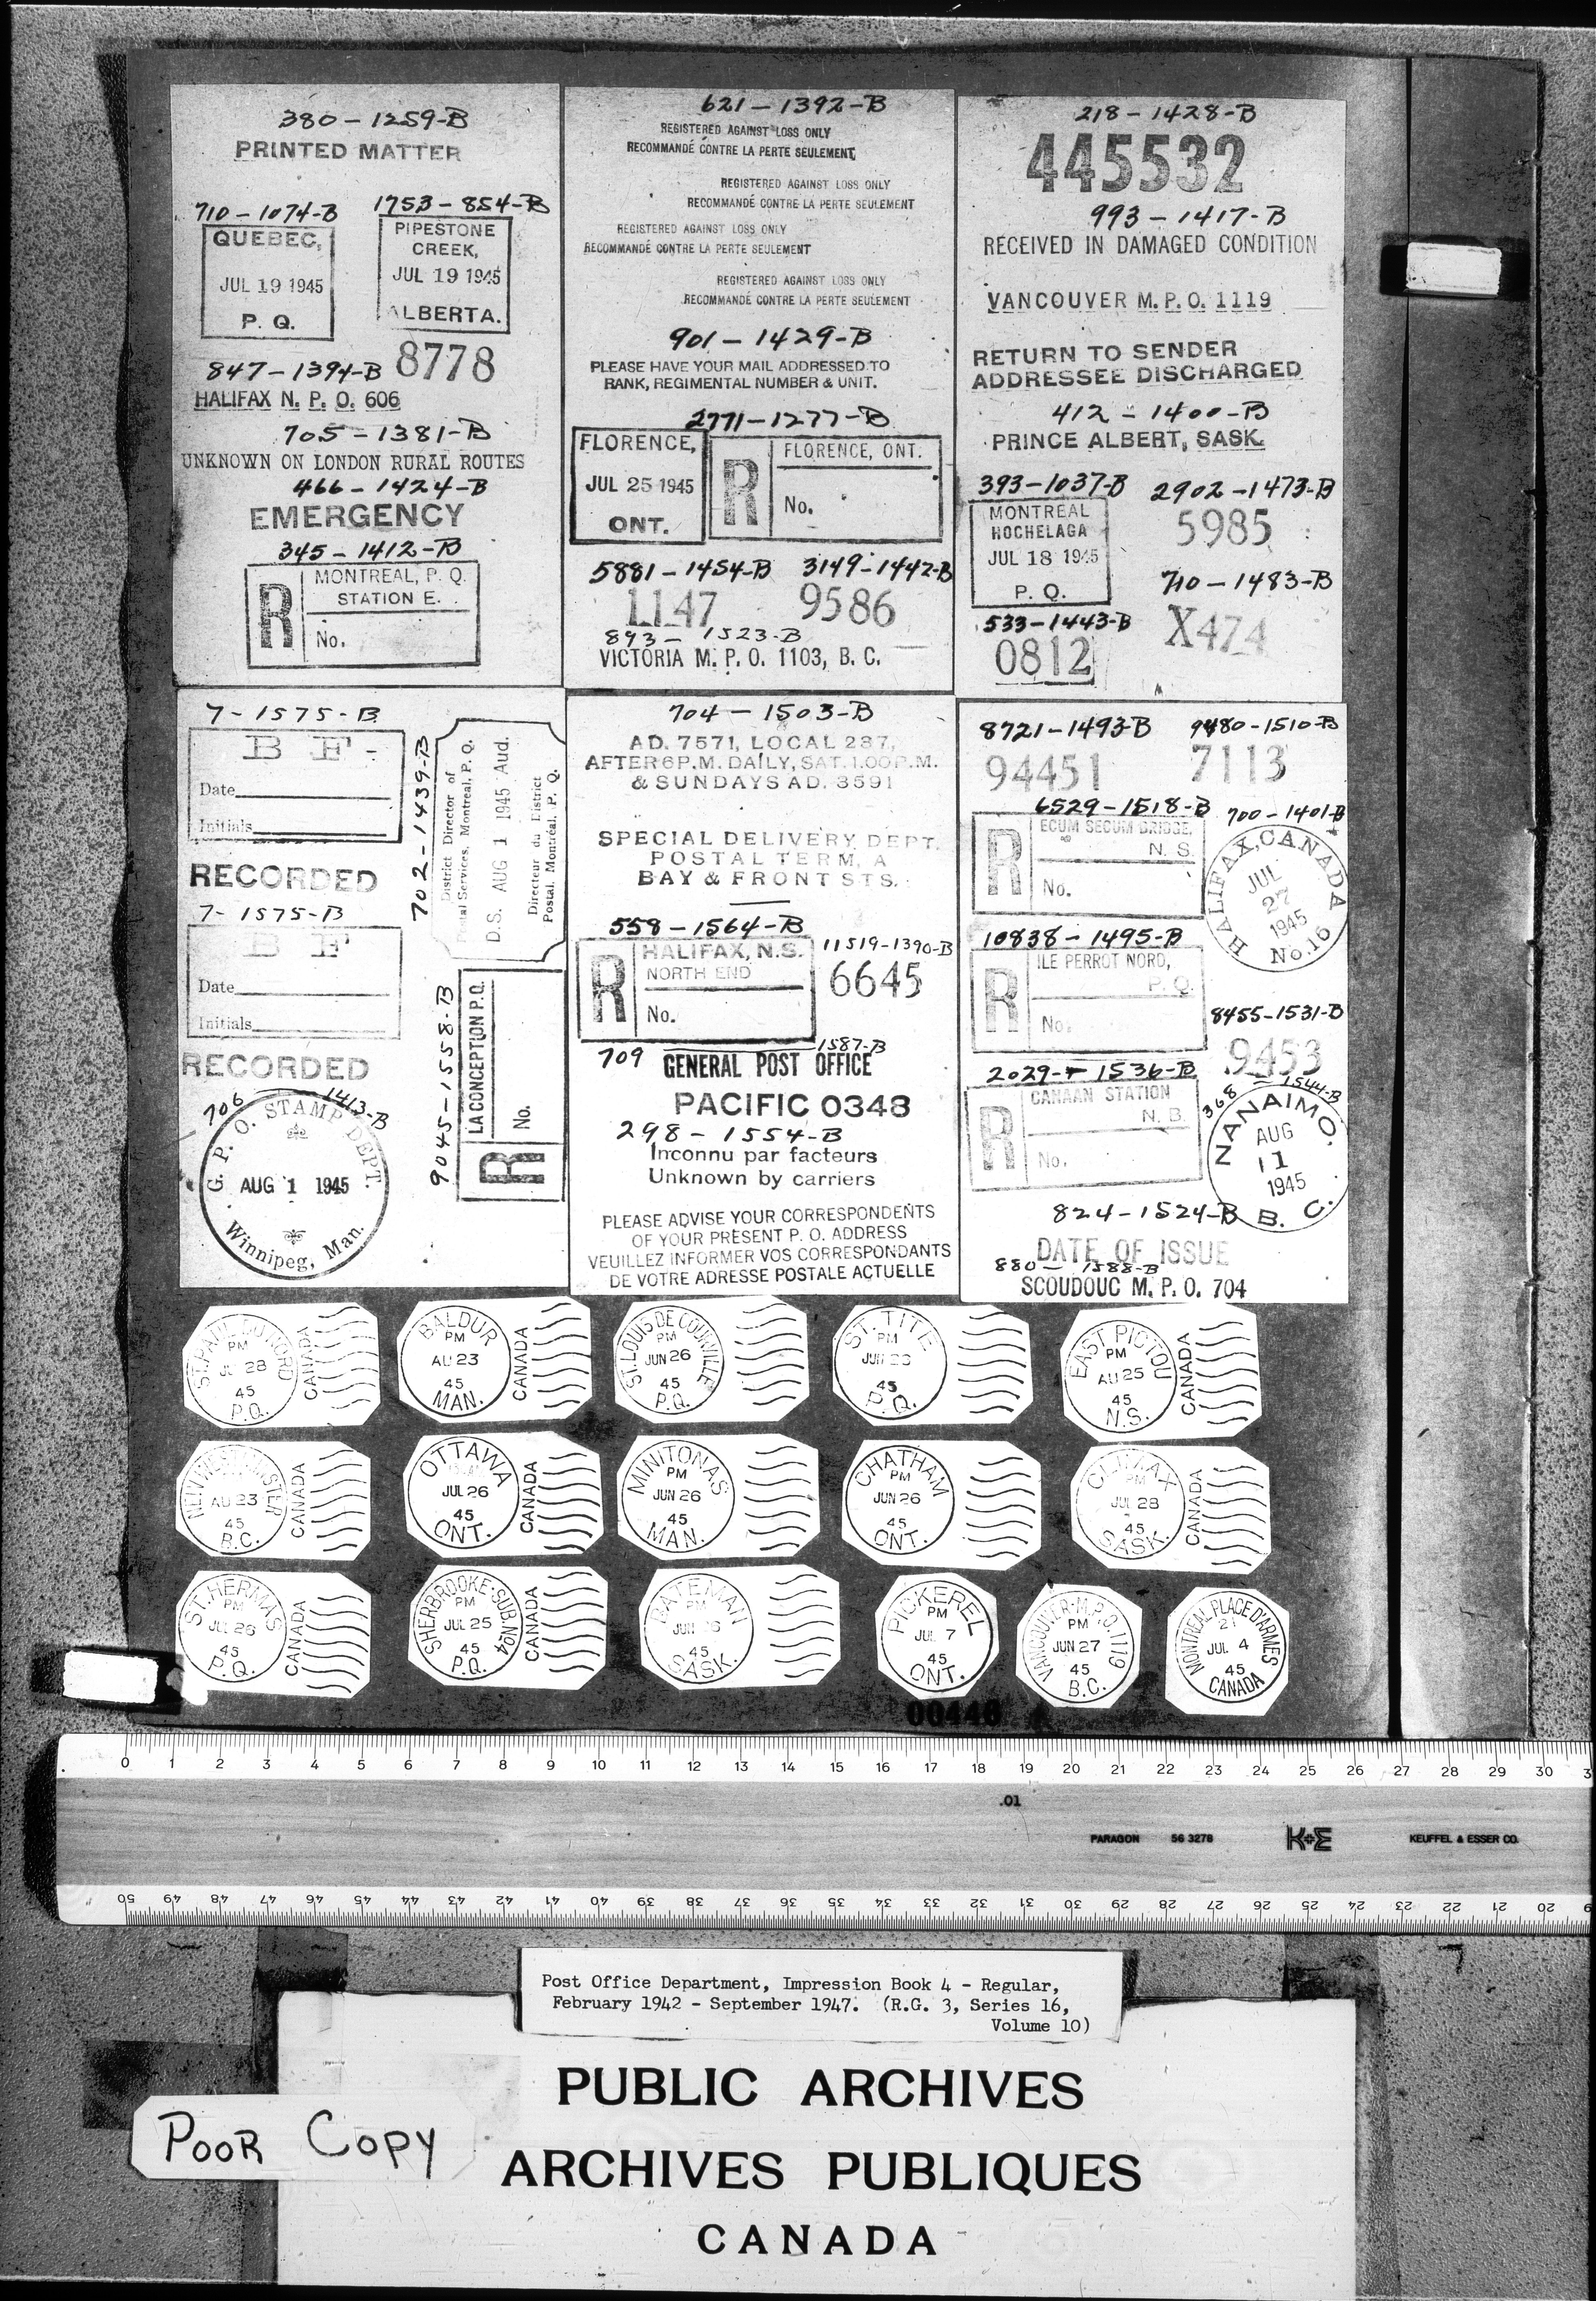 380-1259-B
PRINTED MATTER
710-1074-B
QUEBEC,
JUL 19 1945
P. Q.
1753-854-B
PIPESTONE
CREEK,
JUL 19 1945
ALBERTA.
847-1394-B
8778
HALIFAX N. P. O. 606
705-1381-B
UNKNOWN ON LONDON RURAL ROUTES
466-1424-B
EMERGENCY
345-1412-B
R
MONTREAL, P. Q.
STATION E.
No.
621-1392-B
REGISTERED AGAINST LOSS ONLY
RECOMMANDÉ CONTRE LA PERTE SEULEMENT
REGISTERED AGAINST LOSS ONLY
RECOMMANDÉ CONTRE LA PERTE SEULEMENT
REGISTERED AGAINST LOSS ONLY
RECOMMANDÉ CONTRE LA PERTE SEULEMENT
REGISTERED AGAINST LOSS ONLY
RECOMMANDÉ CONTRE LA PERTE SEULEMENT
901-1429-B
PLEASE HAVE YOUR MAIL ADDRESSED TO
RANK, REGIMENTAL NUMBER & UNIT.
2771-1277-B
FLORENCE,
JUL 25 1945
ONT.
R
FLORENCE, ONT.
No.
5881-1454-B
1147
3149-1442-B
9586
893-1523-B
VICTORIA M. P. O. 1103, B. C.
218-1428-B
445532
993-1417-B
RECEIVED IN DAMAGED CONDITION
VANCOUVER M. P. O. 1119
RETURN TO SENDER
ADDRESSEE DISCHARGED
412-1400-B
PRINCE ALBERT, SASK.
393-1037-B
MONTREAL
HOCHELAGA
JUL 18 1945
P. Q.
2902-1473-B
5985
710-1483-B
X474
533-1443-B
0812
7-1575-B
B F-
Date
Initials
RECORDED
7-1575-B
B F
Date
Initials
RECORDED
706 1413-B
G. P. O. STAMP DEPT.
AUG 1 1945
Winnipeg, Man.
702-1439-B
District Director of
Postal Services, Montreal, P. Q.
D.S. AUG 1 1945 Aud.
Directeur du District
Postal, Montréal, P. Q.
9045-1558-B
LA CONCEPTION P.Q.
No.
R
704-1503-B
AD. 7571, LOCAL 287,
AFTER 6 P.M. DAILY, SAT. 1.00 P.M.
& SUNDAYS AD. 3591
SPECIAL DELIVERY DEPT.
POSTAL TERM, A
BAY & FRONT STS.
558-1564-B
R
HALIFAX, N.S.
NORTH END
No.
11519-1390-B
6645
709 1587-B
GENERAL POST OFFICE
PACIFIC 0348
298-1554-B
Inconnu par facteurs
Unknown by carriers
PLEASE ADVISE YOUR CORRESPONDENTS
OF YOUR PRESENT P. O. ADDRESS
VEUILLEZ INFORMER VOS CORRESPONDANTS
DE VOTRE ADRESSE POSTALE ACTUELLE
8721-1493-B
94451
9480-1510-B
7113
6529-1518-B
R
ECUM SECUM BRIDGE,
N. S.
No.
700-1401-B
HALIFAX, CANADA
JUL
27
1945
No. 16
10838-1495-B
R
ILE PERROT NORD,
P. Q.
No.
8455-1531-B
9453
2029-1536-B
R
CANAAN STATION
N. B.
No.
368-1544-B
NANAIMO.
AUG
11
1945
B. C.
824-1524-B
DATE OF ISSUE
880-1588-B
SCOUDOUC M. P. O. 704
ST. PAUL DU NORD
PM
JL 28
45
P.Q.
CANADA
BALDUR
PM
AU 23
45
MAN.
CANADA
ST. LOUIS DE COURVILLE
PM
JUN 26
45
P.Q.
ST. TITE
PM
JUN 26
45
P.Q.
EAST PICTOU
PM
AU 25
45
N.S.
CANADA
NEW WESTMINSTER
AU 23
45
B.C.
CANADA
OTTAWA
JUL 26
45
ONT.
CANADA
MINITONAS
PM
JUN 26
45
MAN.
CHATHAM
PM
JUN 26
45
ONT.
CLIMAX
PM
JUL 28
45
SASK.
CANADA
ST. HERMAS
PM
JUL 26
45
P.Q.
CANADA
SHERBROOKE-SUB. NO 4
PM
JUL 25
45
P.Q.
CANADA
BATEMAN
PM
JUN 26
45
SASK.
PICKEREL
PM
JUL 7
45
ONT.
VANCOUVER-M.P.O. 1119
PM
JUN 27
45
B.C.
MONTREAL PLACE D'ARMES
21
JUL 4
45
CANADA
00440
0 1 2 3 4 5 6 7 8 9 10 11 12 13 14 15 16 17 18 19 20 21 22 23 24 25 26 27 28 29 30 3
.01
PARAGON 56 3278 K+E KEUFFEL & ESSER CO.
50 49 48 47 46 45 44 43 42 41 40 39 38 37 36 35 34 33 32 31 30 29 28 27 26 25 24 23 22 21 20
Post Office Department, Impression Book 4 - Regular,
February 1942 - September 1947. (R.G. 3, Series 16,
Volume 10)
PUBLIC ARCHIVES
ARCHIVES PUBLIQUES
CANADA
POOR COPY